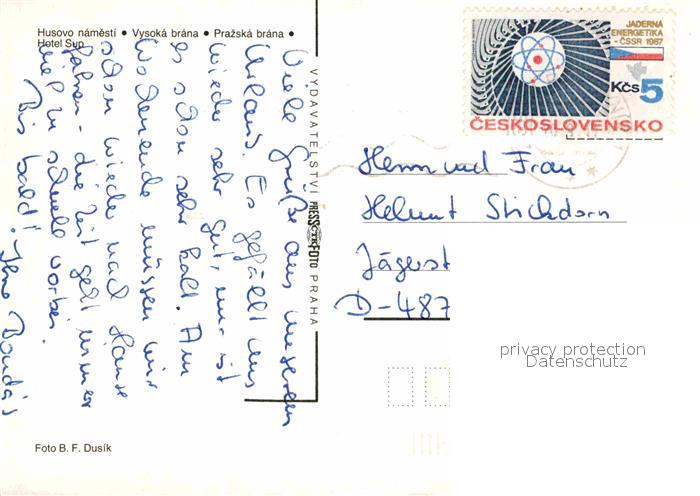 Husovo náměstí • Vysoká brána • Pražská brána •
Hotel Sup
Viele Grüße aus unserem
Urlaub. Es gefällt uns
wieder sehr gut, nur ist
es schon sehr kalt. Am
Wochenende müssen wir
schon wieder nach Hause
fahren - die Zeit geht immer
viel zu schnell vorbei.
Bis bald! Ihre
Foto B. F. Dusík
VYDAVATELSTVÍ PRESSFOTO PRAHA
JADERNÁ
ENERGETIKA
- ČSSR 1987
Kčs 5
ČESKOSLOVENSKO
Herrn und Frau
Helmut Stickdorn
Jägerst
D-487
privacy protection
Datenschutz